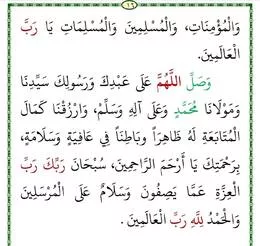 ١٦
وَالْمُؤْمِنَاتِ، وَالْمُسْلِمِينَ وَالْمُسْلِمَاتِ يَا رَبَّ
الْعَالَمِينَ.
وَصَلِّ اللَّهُمَّ عَلَى عَبْدِكَ وَرَسُولِكَ سَيِّدِنَا
وَمَوْلَانَا مُحَمَّدٍ وَعَلَى آلِهِ وَسَلِّمْ، وَارْزُقْنَا كَمَالَ
الْمُتَابَعَةِ لَهُ ظَاهِرًا وَبَاطِنًا فِي عَافِيَةٍ وَسَلَامَةٍ،
بِرَحْمَتِكَ يَا أَرْحَمَ الرَّاحِمِينَ، سُبْحَانَ رَبِّكَ رَبِّ
الْعِزَّةِ عَمَّا يَصِفُونَ وَسَلَامٌ عَلَى الْمُرْسَلِينَ
وَالْحَمْدُ لِلَّهِ رَبِّ الْعَالَمِينَ.